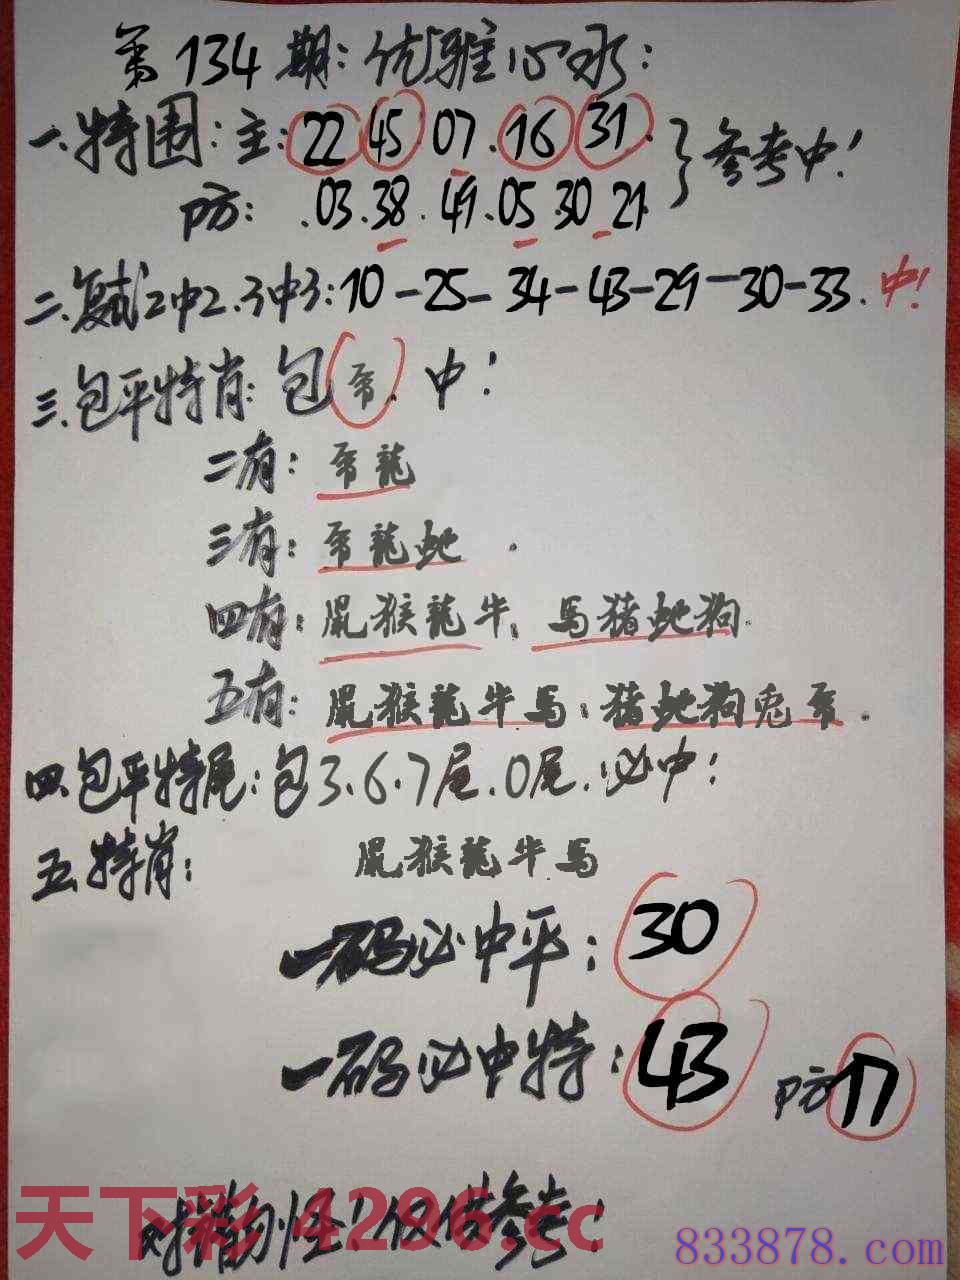 第134期:优雅心水:
一.特围:主:22.45.07.16.31.}参考中!
防:.03.38.49.05.30.21.
二.复试2中2.3中3:10-25-34-43-29-30-33.中!
三.包平特肖:包帝.中!
二有:帝龍
三有:帝龍蛇.
四有:鼠猴龍牛.馬猪蛇狗.
五有:鼠猴龍牛馬.猪蛇狗兎帝.
四.包平特尾:包3.6.7尾.0尾.必中!
五.特肖:鼠猴龍牛馬
一码必中平:30
一码必中特:43 防17
对错勿怪!仅供参考!
天下彩 4296.cc
833878.com